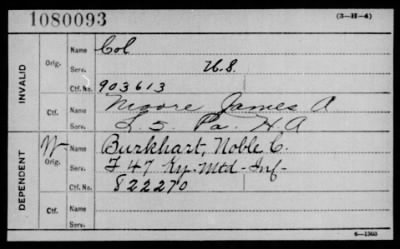 1080093
(3—H—4)
INVALID
Orig.
Name Col
Serv. U.S.
Ctf. No. 903613
Ctf. Name Moore James A
Serv. L. 5. Pa. H.A
DEPENDENT
W- Orig.
Name Burkhart, Noble C.
Serv. F 47 Ky. Mtd-Inf-
Ctf. No. 822270
Ctf. Name
Serv.
6—1360